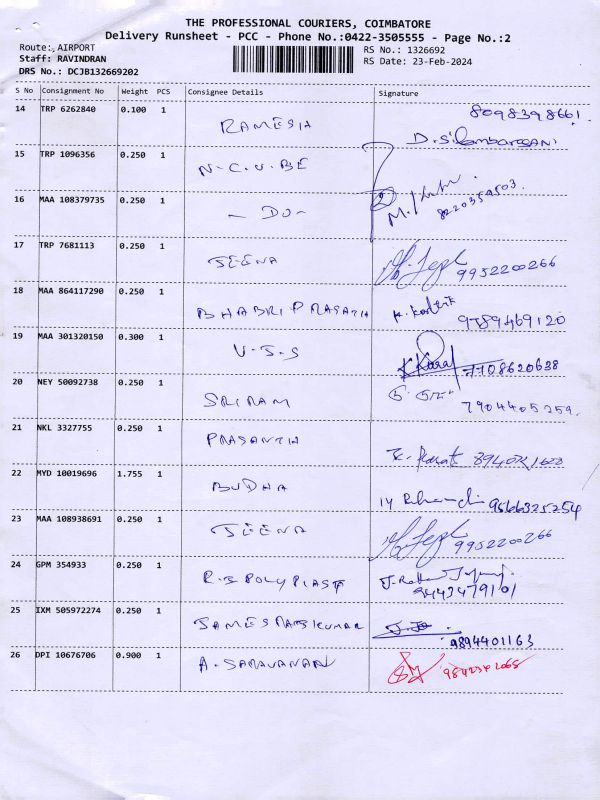 THE PROFESSIONAL COURIERS, COIMBATORE
Delivery Runsheet - PCC - Phone No.:0422-3505555 - Page No.:2
Route: AIRPORT
Staff: RAVINDRAN
DRS No.: DCJB132669202
RS No.: 1326692
RS Date: 23-Feb-2024
S No Consignment No Weight PCS Consignee Details Signature
14 TRP 6262840 0.100 1 RAMESH 8098398661
15 TRP 1096356 0.250 1 N.C.U.BE
16 MAA 108379735 0.250 1 - DO - 8220359503
17 TRP 7681113 0.250 1 JEENA 9952200266
18 MAA 864117290 0.250 1 BHABRI PRASATH K. Kartik 9789469120
19 MAA 301320150 0.300 1 V.S.S 7708620638
20 NEY 50092738 0.250 1 SRIRAM 7904405259.
21 NKL 3327755 0.250 1 PRASANTH
22 MYD 10019696 1.755 1 BUDHA 9566325254
23 MAA 108938691 0.250 1 JEENA 9952200266
24 GPM 354933 0.250 1 R.S POLYPLAST 9443479101
25 IXM 505972274 0.250 1 JAMES RAJKUMAR 9894401163
26 DPI 10676706 0.900 1 A. SARAVANAN